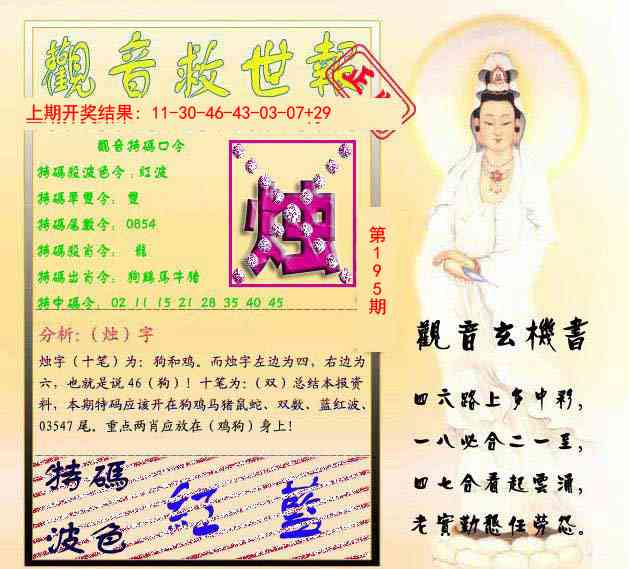 觀音救世報
上期开奖结果：11-30-46-43-03-07+29
觀音特碼口令
特碼殺波色令：紅波
特碼單雙令：雙
特碼尾數令：0854
特碼殺肖令：龍
特碼出肖令：狗鷄馬牛猪
特中碼令：02 11 15 21 28 35 40 45
烛
第195期
分析:（烛）字
烛字（十笔）为：狗和鸡。而烛字左边为四，右边为
六，也就是说46（狗）！十笔为：（双）总结本报资
料，本期特码应该开在狗鸡马猪鼠蛇、双数、蓝红波、
03547尾。重点两肖应放在（鸡狗）身上！
特碼
波色
紅 藍
觀音玄機書
四六路上多中彩，
一八必合二一至，
四七合看起雲涌，
老實勤懇任勞怨。